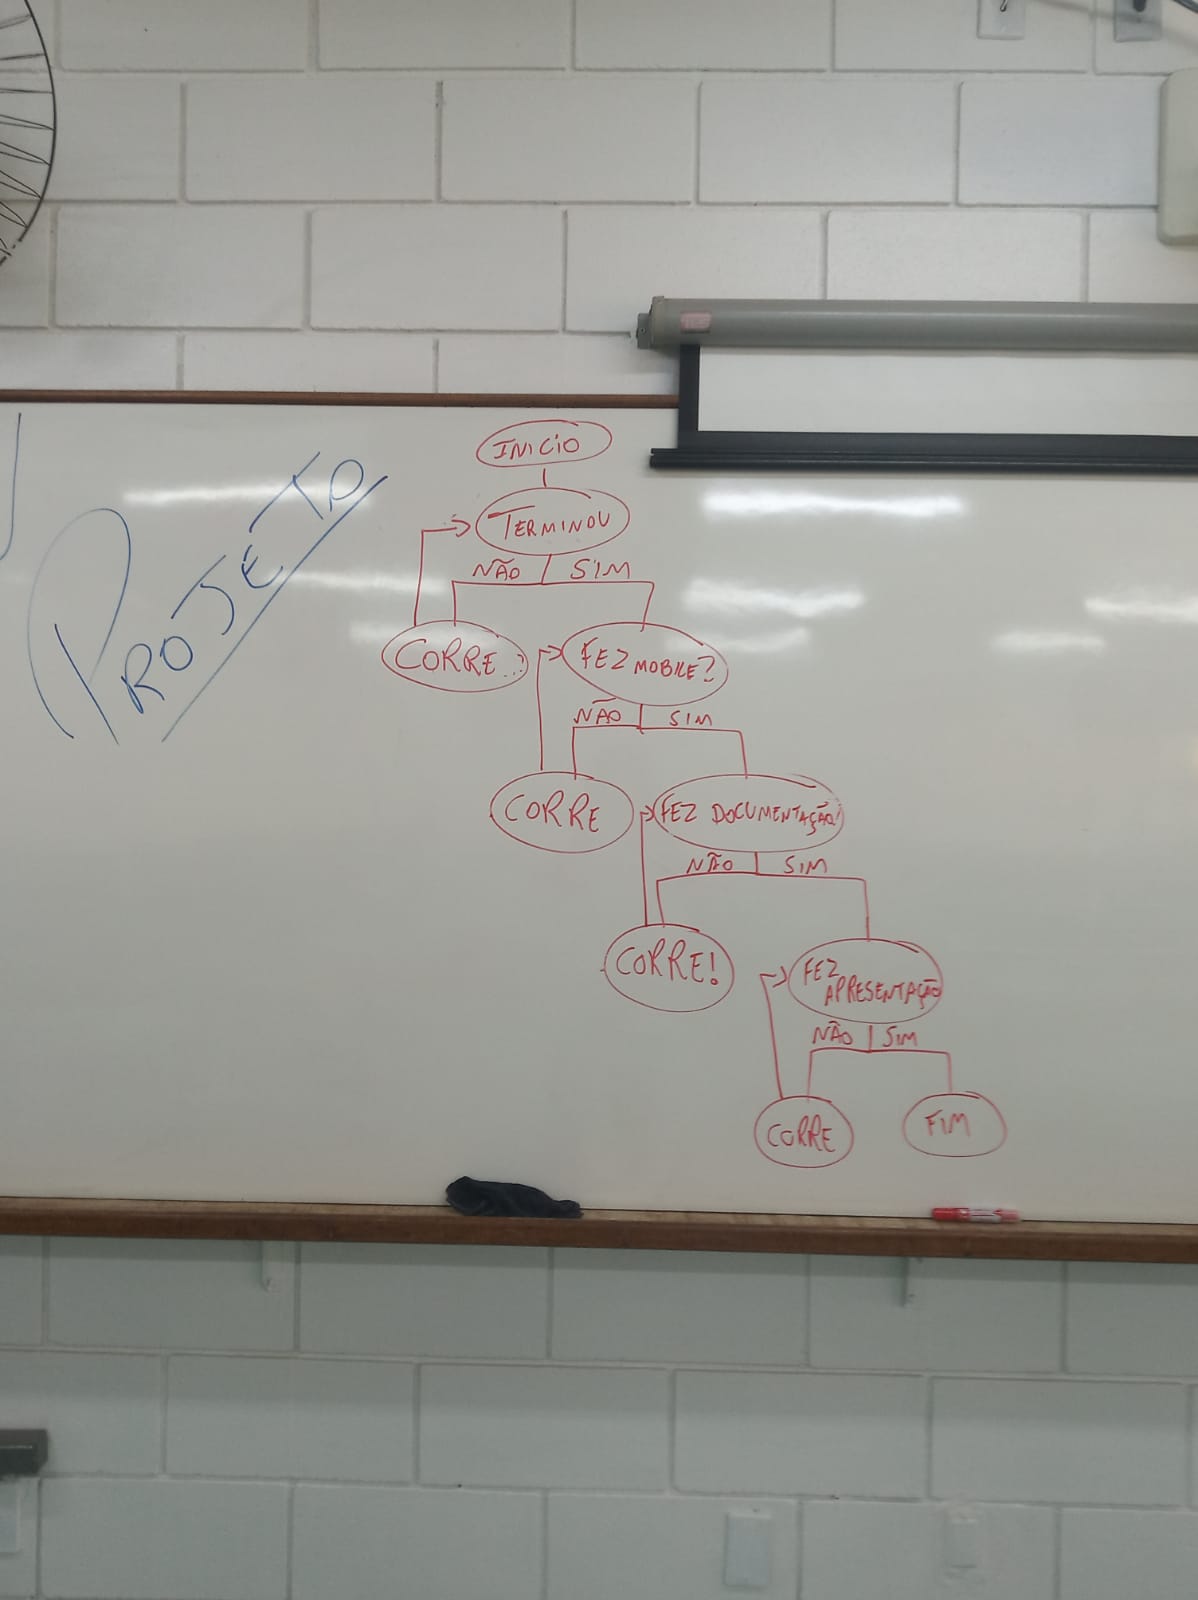 PROJETO
INICIO
TERMINOU
NÃO SIM
CORRE..
FEZ MOBILE?
NÃO SIM
CORRE
FEZ DOCUMENTAÇÃO!
NÃO SIM
CORRE!
FEZ
APRESENTAÇÃO
NÃO SIM
CORRE
FIM